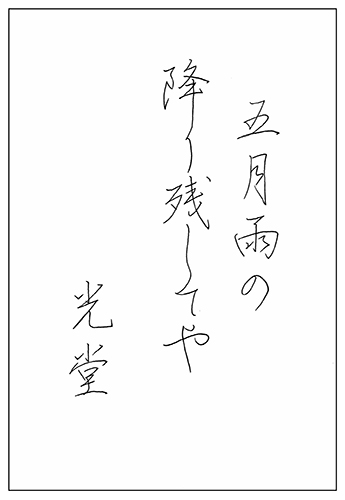 五月雨の
降り残してや
光堂